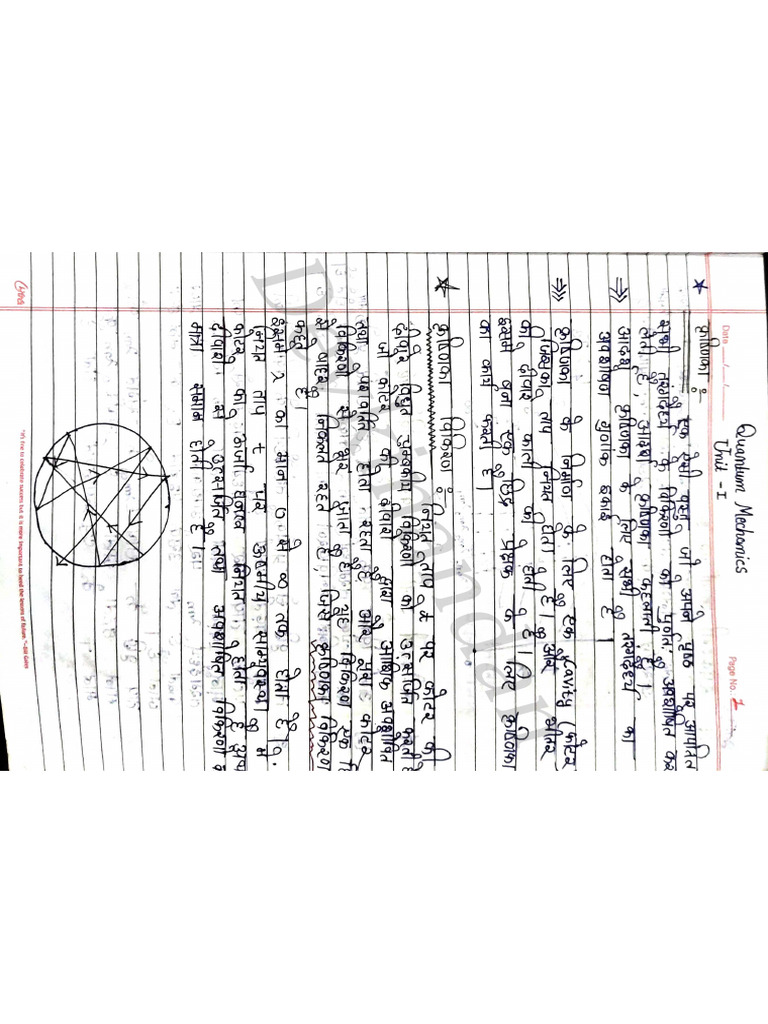 Date
Page No. 1
Quantum Mechanics
Unit - I
★ कृष्णिका :
एक ऐसी वस्तु जो अपने पृष्ठ पर आपतित
सभी तरंगदैर्ध्य के विकिरणों को पूर्णतः अवशोषित कर
लेती है, आदर्श कृष्णिका कहलाती है।
⇒ आदर्श कृष्णिका के लिए सभी तरंगदैर्ध्य का
अवशोषण गुणांक इकाई होता है।
⇒ कृष्णिका के निर्माण के लिए एक cavity (कोटर
जिसका ताप नियत होता है। और भीतर
की दीवार काली की होती है।
इसमें बना एक छिद्र प्रेक्षक के लिए कृष्णिका
का कार्य करता है।
★ कृष्णिका विकिरण :
नियत ताप t पर कोटर की
दीवारे विद्युत चुम्बकीय विकिरणों को उत्सर्जित करती है
जो कोटर की दीवारों द्वारा आंशिक अवशोषित
तथा परावर्तित होता रहता है और पूरा कोटर
विकिरणों से भर जाता है यह विकिरण एक
से बाहर निकलता रहता है, जिसे कृष्णिका विकिरण
कहते है।
इसमें λ का मान 0 से ∞ तक होता है।
नियत ताप t पर ऊष्मीय साम्यावस्था में
कोटर का ऊर्जा घनत्व नियत होता है अर्थात
दीवारों से उत्सर्जित तथा अवशोषित विकिरणों
मात्रा समान होती है।
Devkinandan
"It's fine to celebrate success but it is more important to heed the lessons of failure." - Bill Gates